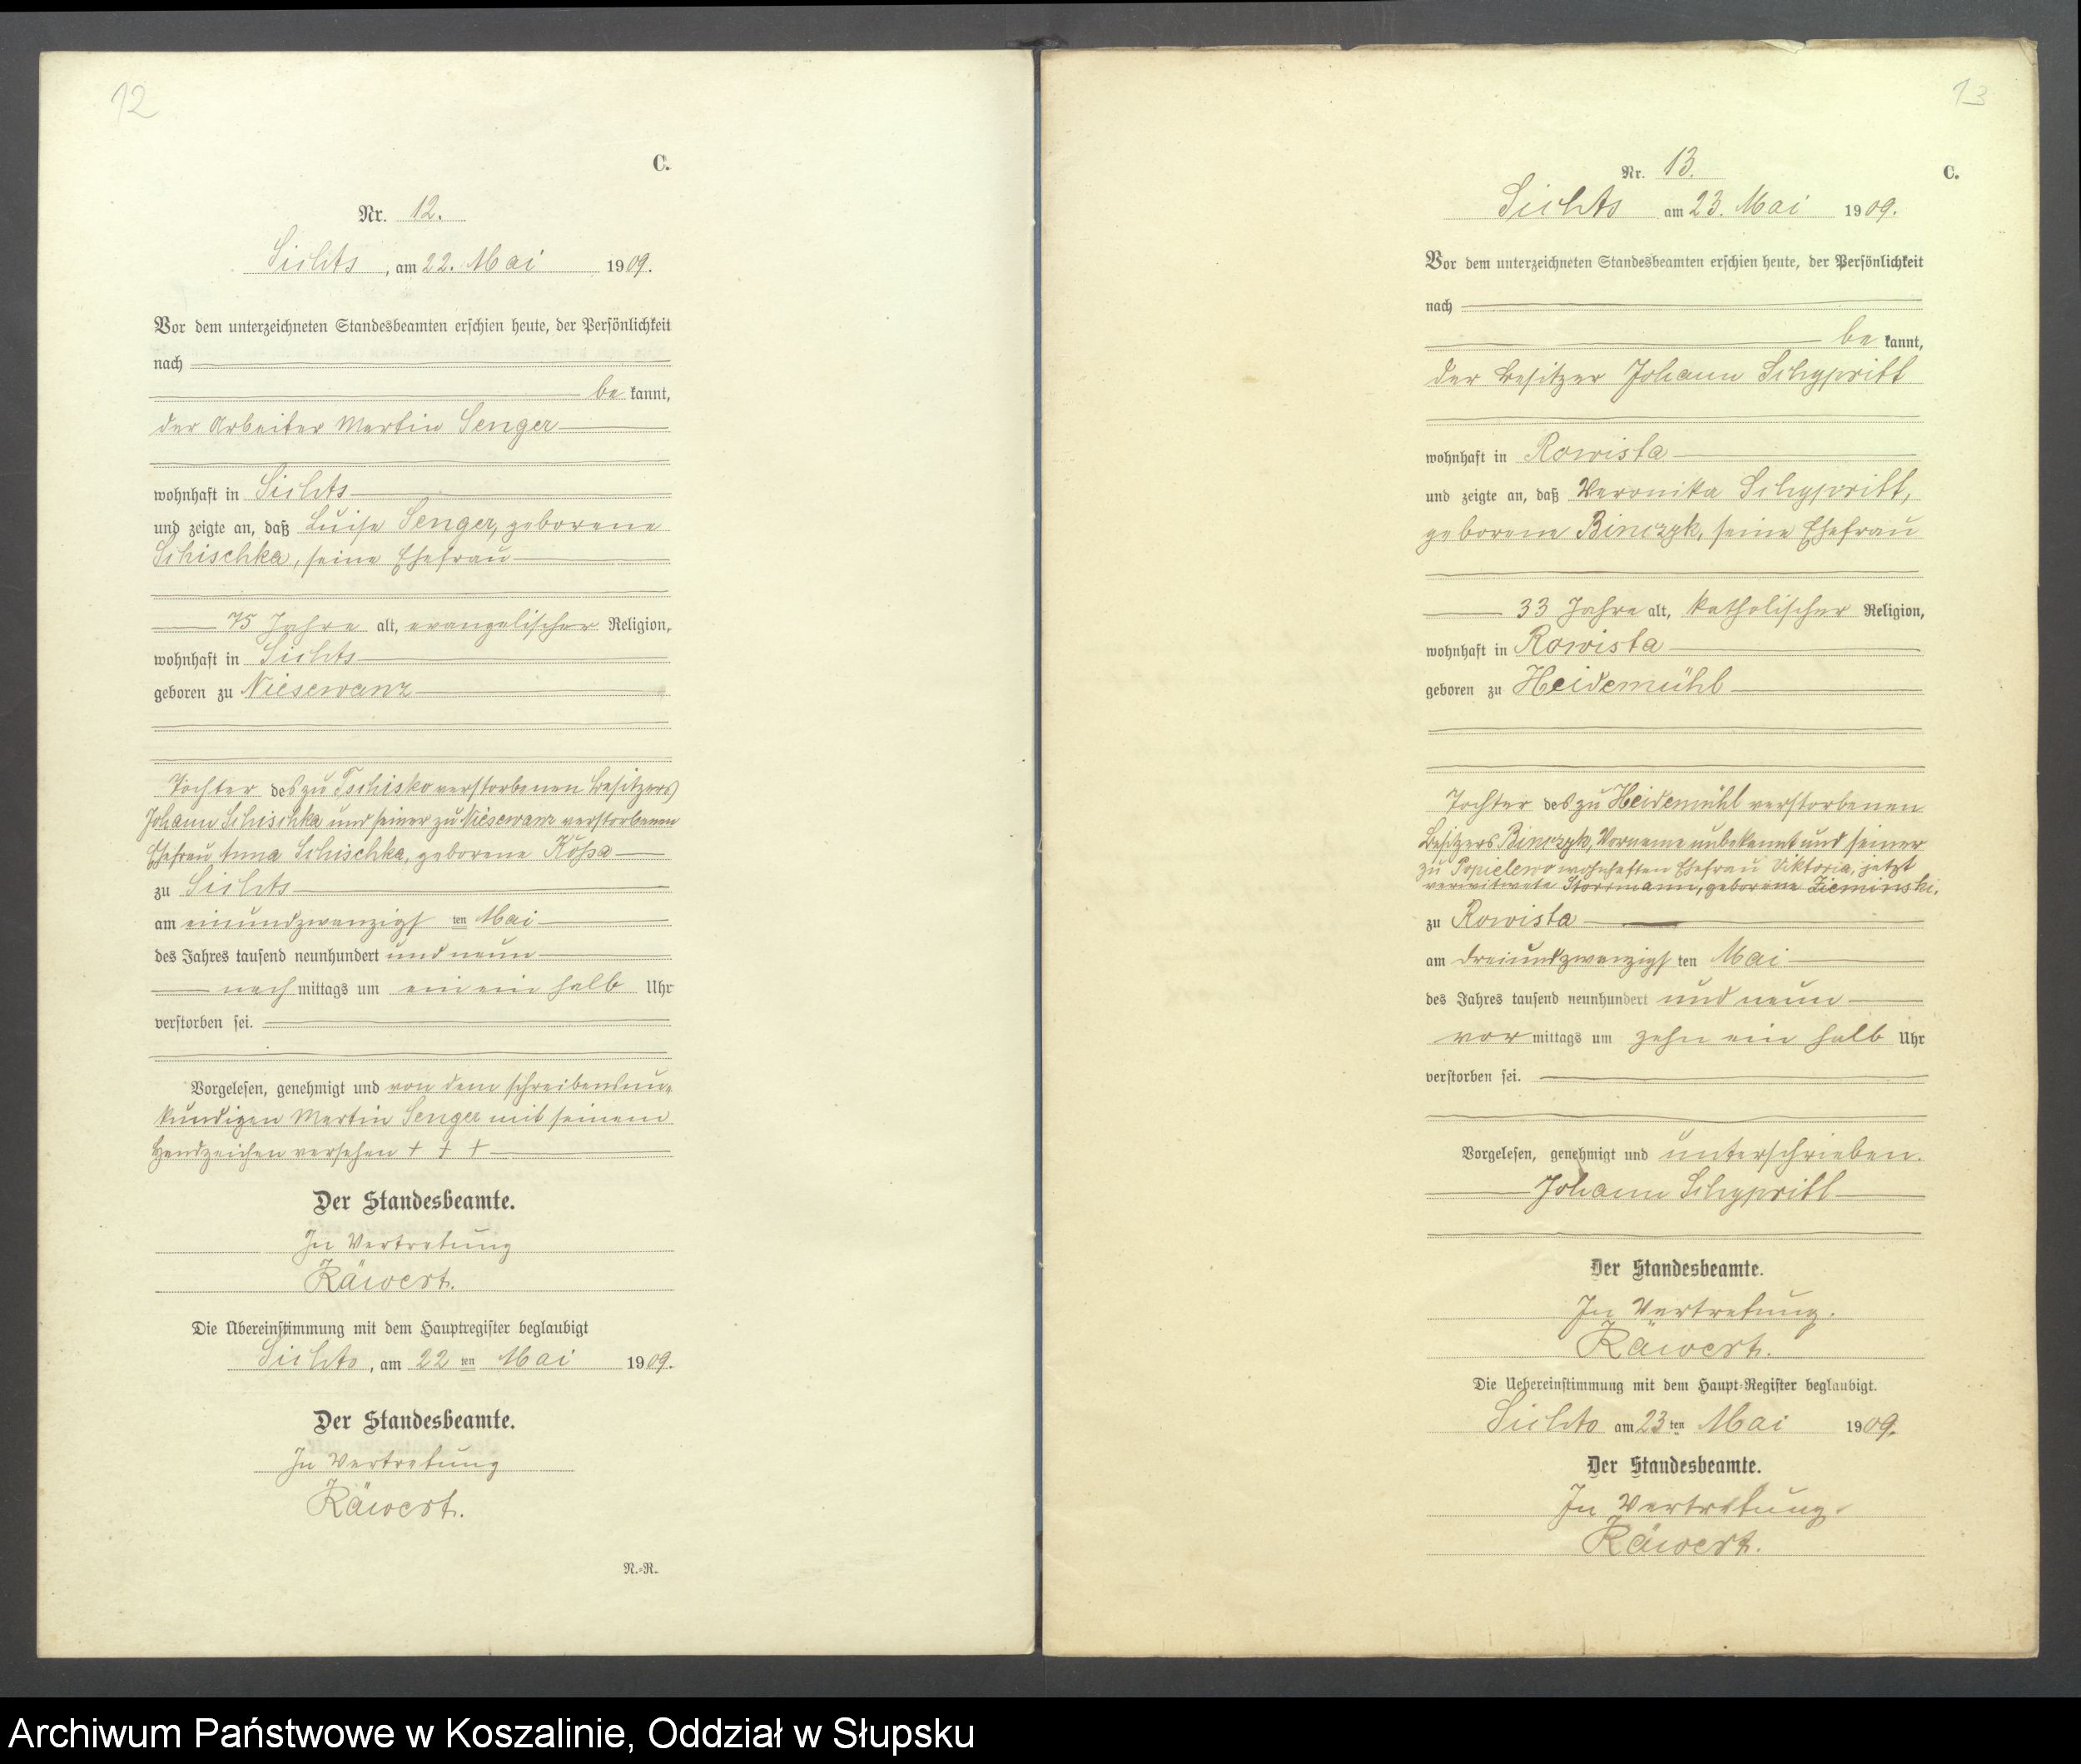 12
C.
Nr. 12.
Sichts, am 22. Mai 1909.
Vor dem unterzeichneten Standesbeamten erschien heute, der Persönlichkeit
nach
be kannt,
der Arbeiter Martin Senger
wohnhaft in Sichts
und zeigte an, daß Luise Senger, geborene
Schischka, seine Ehefrau
75 Jahre alt, evangelischer Religion,
wohnhaft in Sichts
geboren zu Niesewanz
Tochter des zu Tschisko verstorbenen Besitzers
Johann Schischka und seiner zu Niesewanz verstorbenen
Ehefrau Anna Schischka, geborene
zu Sichts
am einundzwanzigsten Mai
des Jahres tausend neunhundert und neun
nach mittags um ein ein halb Uhr
verstorben sei.
Vorgelesen, genehmigt und von dem schreibensun-
kundigen Martin Senger mit seinem
Handzeichen versehen + + +
Der Standesbeamte.
In Vertretung
Räwert.
Die Übereinstimmung mit dem Hauptregister beglaubigt
Sichts, am 22 ten Mai 1909.
Der Standesbeamte.
In Vertretung
Räwert.
N.-R.
13
Nr. 13. C.
Sichts am 23. Mai 1909.
Vor dem unterzeichneten Standesbeamten erschien heute, der Persönlichkeit
nach
be kannt,
der Besitzer Johann
wohnhaft in Rowista
und zeigte an, daß Veronika
geborene Binczyk, seine Ehefrau
33 Jahre alt, katholischer Religion,
wohnhaft in Rowista
geboren zu Heidemühl
Tochter des zu Heidemühl verstorbenen
Besitzers Binczyk, Vorname unbekannt und seiner
zu Popielewo wohnhaften Ehefrau Viktoria, jetzt
verwitwete Störrmann, geborene Zieminski.
zu Rowista
am dreiundzwanzigsten Mai
des Jahres tausend neunhundert und neun
vor mittags um zehn ein halb Uhr
verstorben sei.
Vorgelesen, genehmigt und unterschrieben.
Johann
Der Standesbeamte.
In Vertretung.
Räwert.
Die Uebereinstimmung mit dem Haupt-Register beglaubigt.
Sichts am 23 ten Mai 1909.
Der Standesbeamte.
In Vertretung.
Räwert.
Archiwum Państwowe w Koszalinie, Oddział w Słupsku